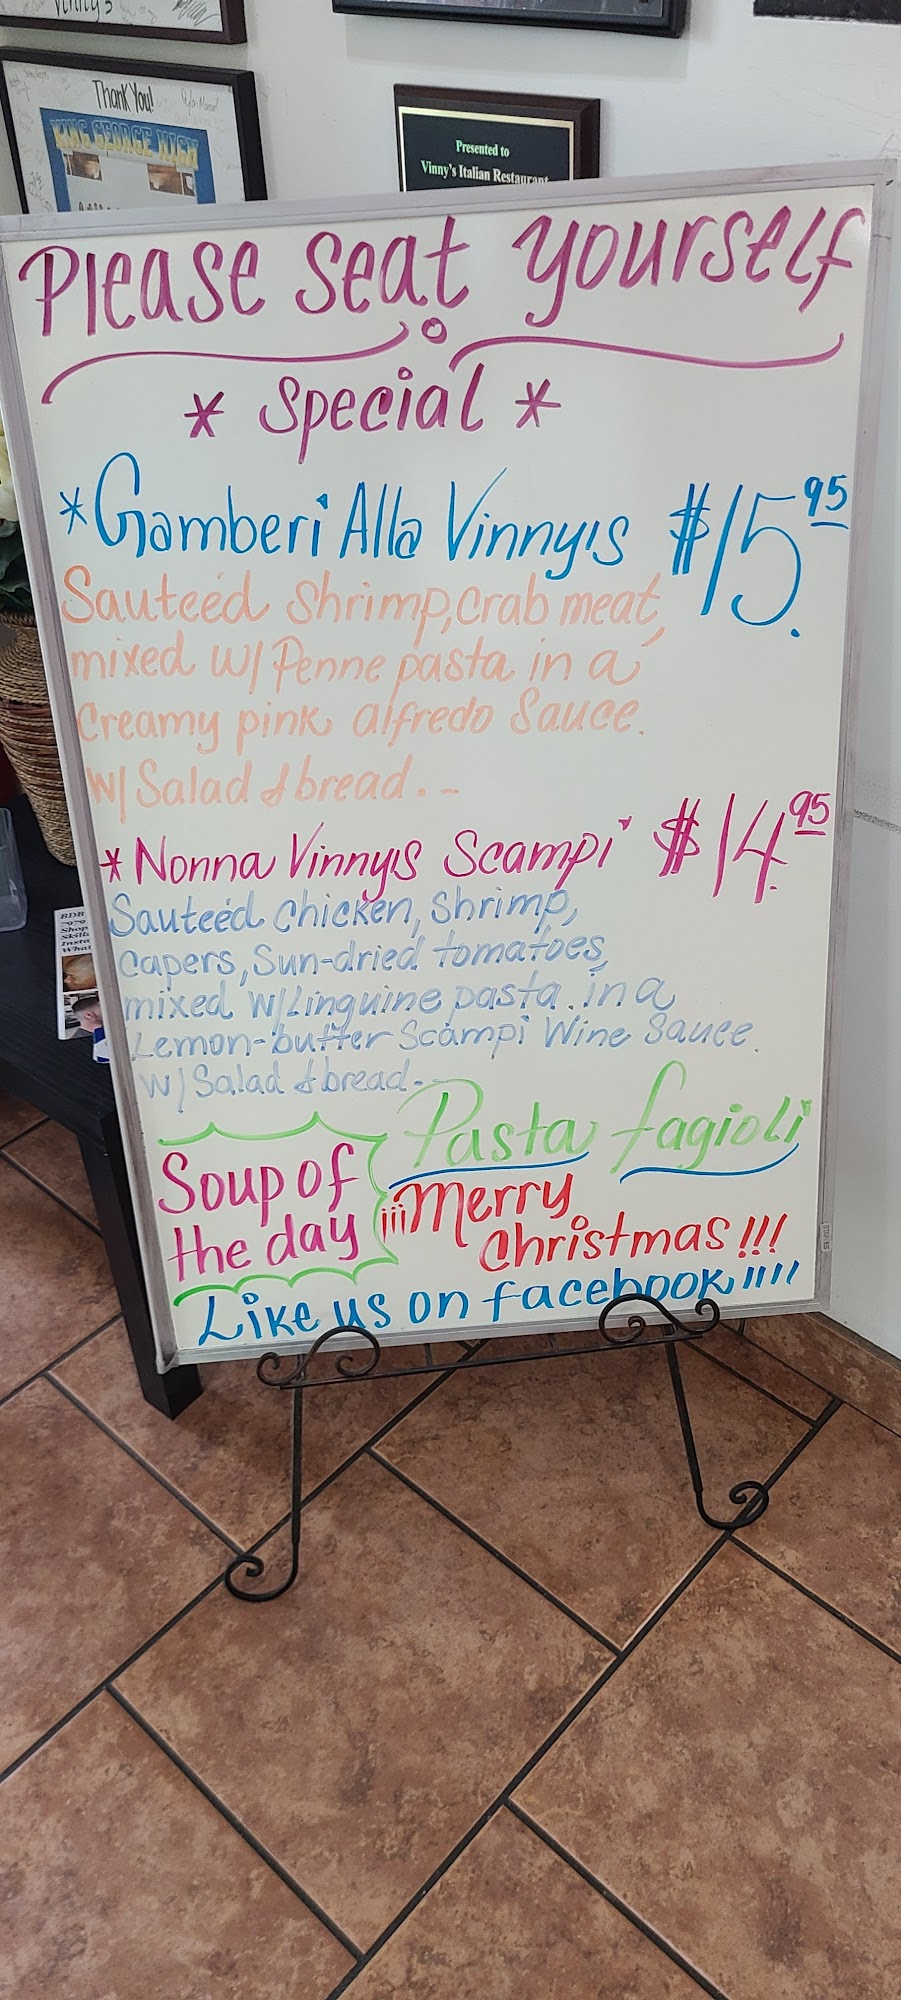 Vinny's
Thank You!
KING GEORGE HIGH
Presented to
Vinny's Italian Restaurant
Please seat yourself
* Special *
*Gamberi Alla Vinny's $15.95
Sauteéd Shrimp, Crab meat,
mixed w/ Penne pasta in a
Creamy pink alfredo Sauce.
w/ Salad & bread..-
*Nonna Vinny's Scampi $14.95
Sauteéd chicken, Shrimp,
capers, Sun-dried tomatoes,
mixed w/Linguine pasta in a
Lemon-butter Scampi Wine Sauce.
w/ Salad & bread..-
Soup of
the day
Pasta fagioli
¡¡¡Merry
Christmas!!!
Like us on facebook!!!!
STAPLES